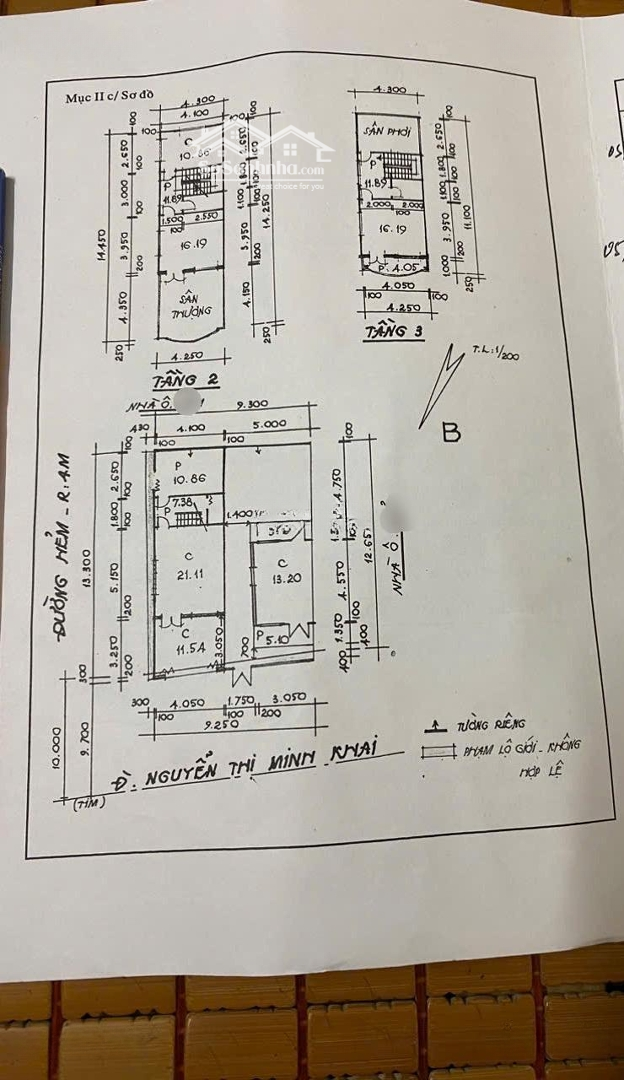 Mục II c/ Sơ đồ
4.300
4.100
100
C
10.86
100
2.650
100
3.000
100
3.950
200
4.350
250
14.450
P
11.89
1.500
2.550
100
16.19
SÂN
THƯỢNG
2.650
1.800
1.100
14.250
3.950
200
4.150
250
4.250
TẦNG 2
4.300
SÂN PHƠI
P
11.89
2.000
2.000
100
16.19
P. 4.05
100
2.650
1.800
1.100
3.950
200
1.000
11.100
250
4.050
100
100
4.250
TẦNG 3
T.L: 1/200
B
NHÀ Ô.
9.300
430
4.100
5.000
100
100
P
10.86
7.38
P
1.400
C
21.11
C
13.20
C
11.54
3.050
P
5.10
700
100
2.650
100
1.800
100
5.150
200
3.250
200
13.300
300
ĐƯỜNG HẺM - R: 4M
100
4.750
4.550
100
1.350
400
12.65
400
NHÀ Ô.
300
4.050
1.750
3.050
100
100
200
9.250
10.000
9.700
(TIM)
Đ: NGUYỄN THỊ MINH KHAI
TƯỜNG RIÊNG
PHẠM LỘ GIỚI - KHÔNG
HỢP LỆ